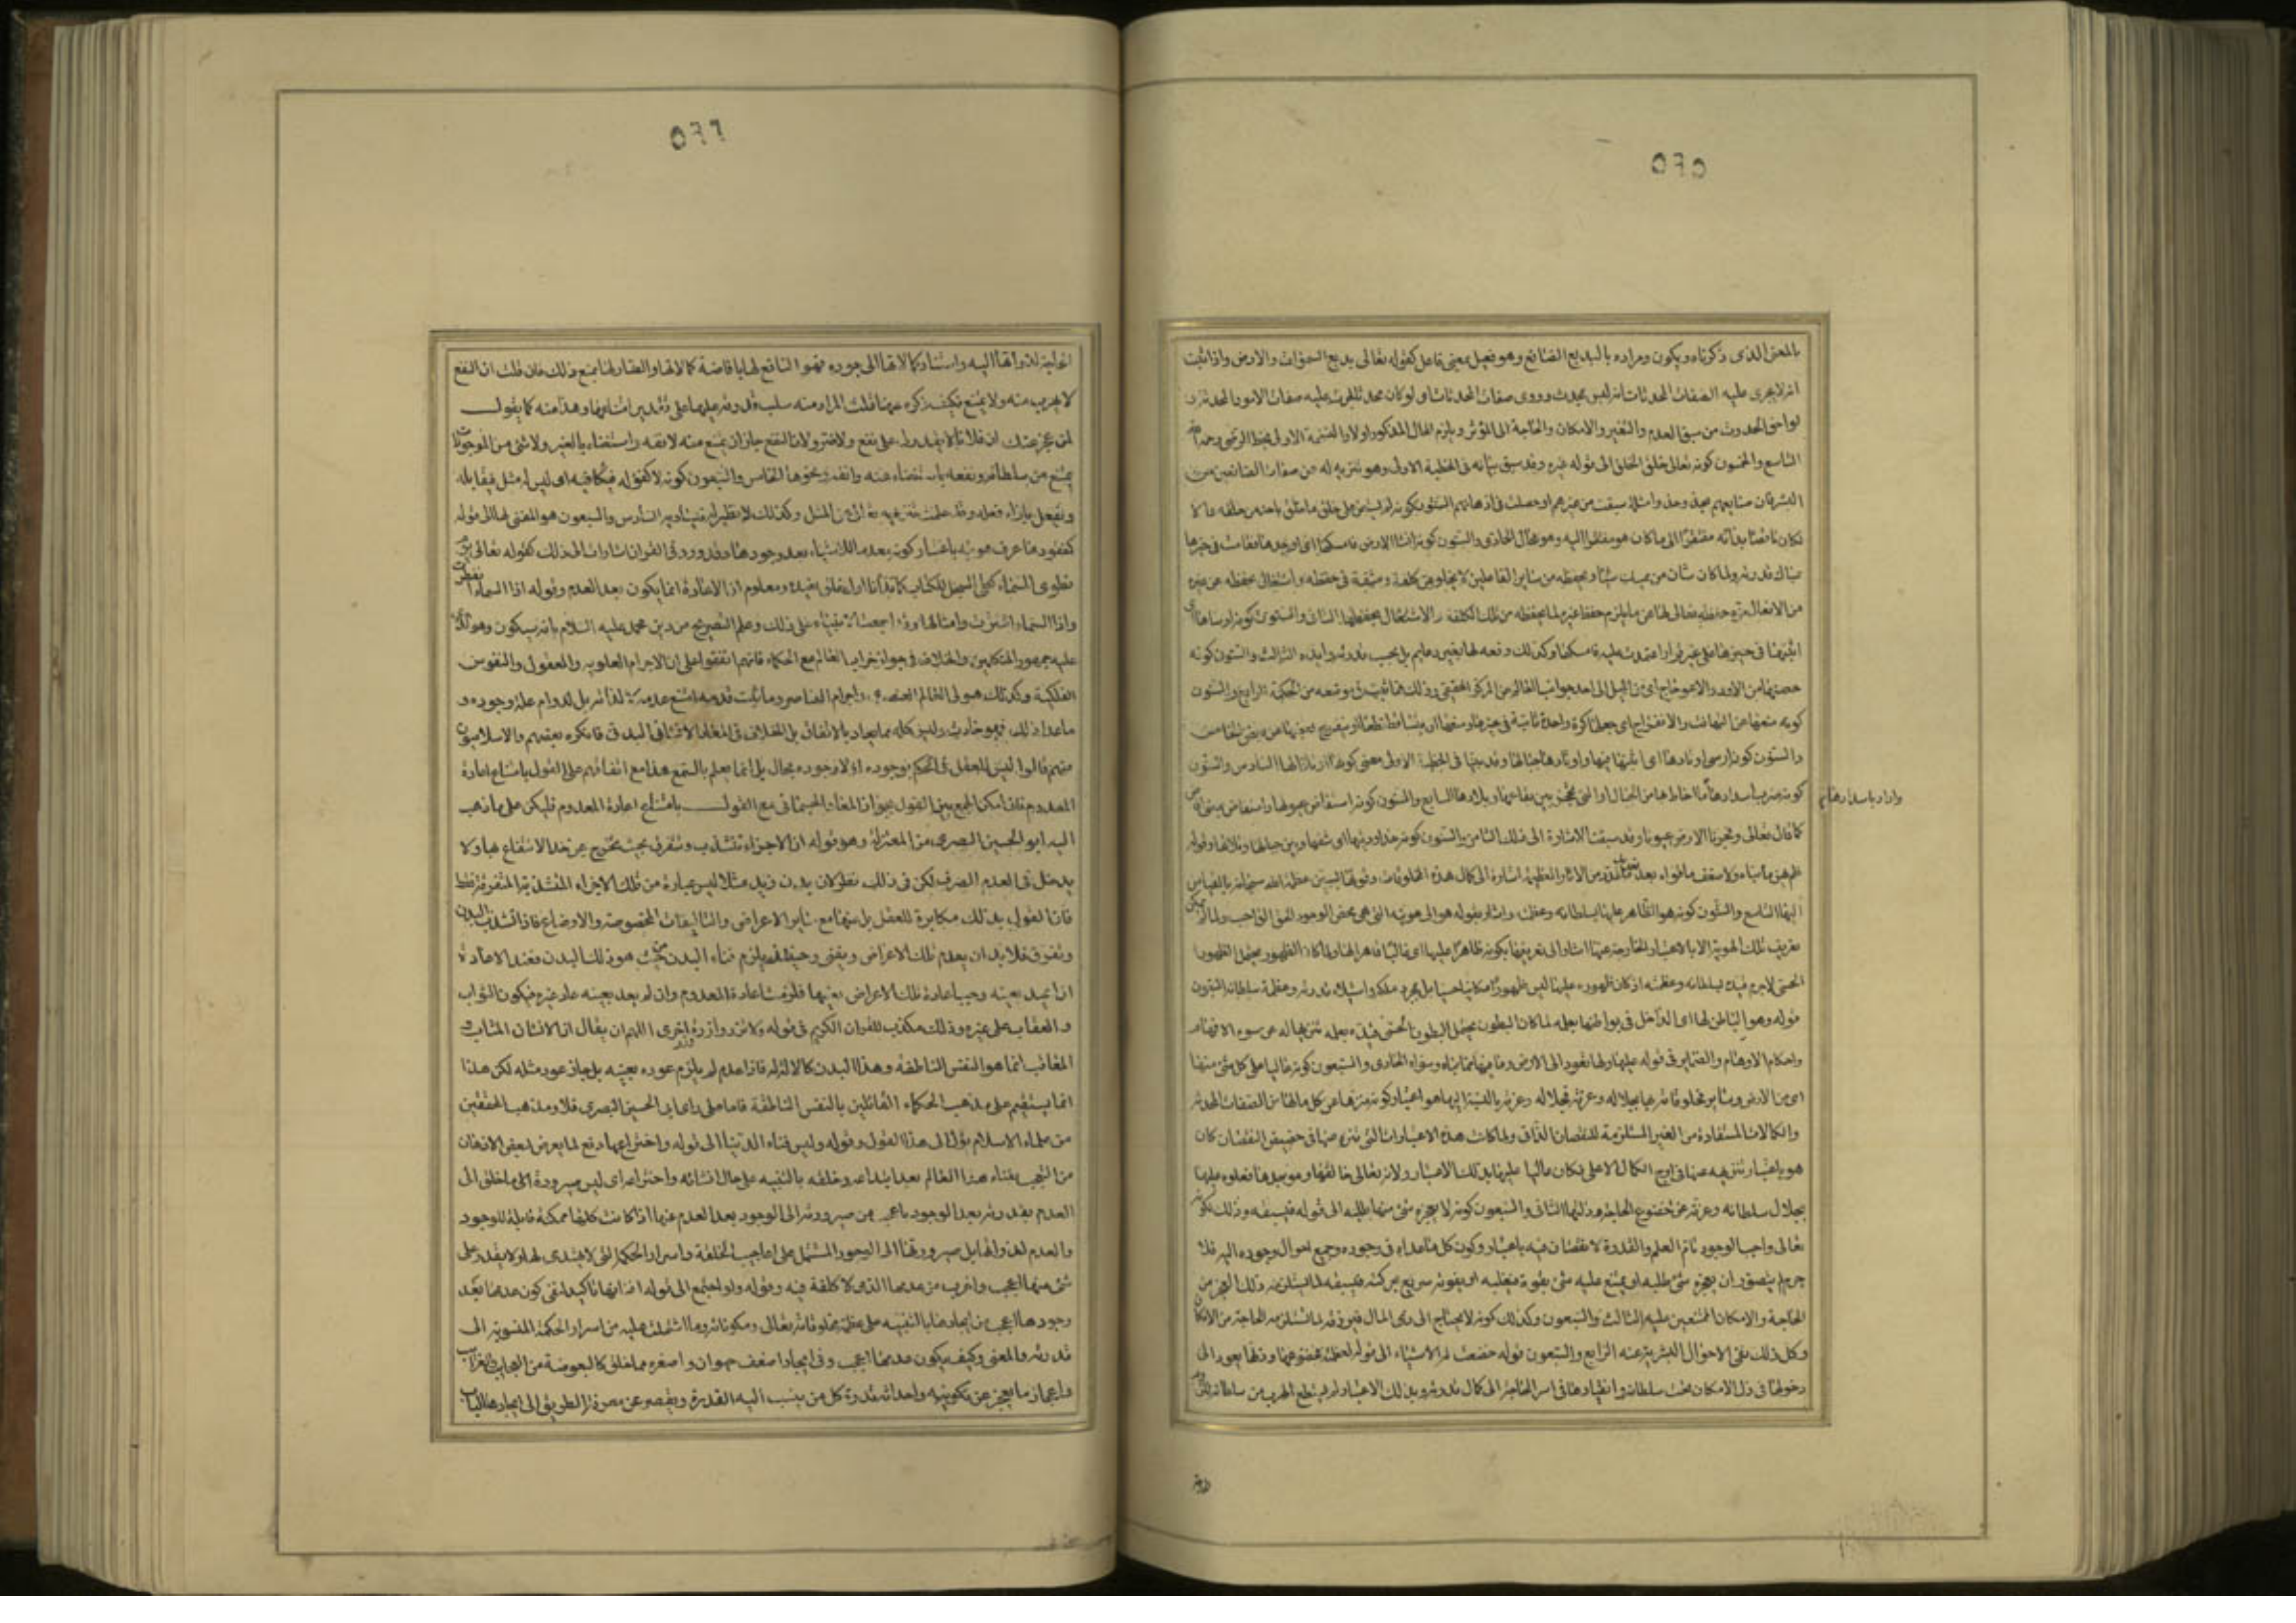 ٥٢٥
بالمعنى الذى ذكرناه ويكون ومراده بالبديع الصانع وهو فعيل بمعنى فاعل كقوله تعالى بديع السموات والارض واذا ثبت
انه لا يجرى عليه الصفات المحدثات انه ليس بمحدث وروى صفات المحدثات ولو كان محدثا لجرت عليه صفات الامور المحدثة
لواحق الحدوث من سبق العدم والتغير والامكان والحاجة الى المؤثر ويلزم المحال المذكور اولا
التاسع والخمسون كونه تعالى خلق الخلق الى قوله غيره وقد سبق بيانه فى الخطبة الاولى وهو تنزيه له عن صفات الصانعين من
البشر فان صنايعهم تحذو حذو امثلة سبقت من غيرهم او حصلت فى اذهانهم الستون كونه لم يستعن على خلق ما خلق باحد من خلقه والا
لكان ناقصا بذاته مفتقرا الى ما كان هو مفتقرا اليه وهو محال الحادى والستون كونه انشا الارض فامسكها اى اوجدها فقامت فى حيزها
من الاشغال نزه حفظه تعالى لها عن ما يلزم حفظ غيره لما يحفظه من تلك الكلفة والاشتغال بحفظها الثانى والستون كونه ارساها اى
اثبتها فى حيزها على غير قرار اعتمدت عليه فامسكها وكذلك رفعه لها بغير دعايم بل بحسب قدرته وايده الثالث والستون كونه
حصنها من الاود والاعوجاج اى من الميل الى احد جوانب العالم من المركز الحقيقى وذلك مما ثبت فى موضعه من الحكمة الرابع والستون
كونه منعها من التهافت والانفراج اى جعلها كرة واحدة ثابتة فى حيزها ومنعها ان يتساقط قطعا او ينفرج بعضها من بعض الخامس
والستون كونه ارسى اوتادها اى اثبتها فيها واوتادها جبالها وقد بينا فى الخطبة الاولى معنى كونها اوتادا لها السادس والستون
كونه ضرب اسدادها ما احاط بها من الجبال او التى تحجز بين بقاعها وبلادها السابع والستون كونه استفاض عيونها واستفاض بمعنى افاض
واراد باسدادها
كما قال تعالى وفجرنا الارض عيونا وقد سبقت الاشارة الى ذلك الثامن والستون كونه خد اوديتها اى شقها وبين جبالها وتلالها وقوله
فلم يهن ما بناه ولا ضعف ما قواه بعد تعديد تلك من الاثار العظيمة اشارة الى كمال هذه المخلوقات وقوتها ليتبين عظمة الله سبحانه بالقياس
اليها التاسع والستون كونه هو الظاهر عليها بسلطانه وعظمته واشار بقوله هو الى هويته التى هى محض الوجود الحق الواجب ولما لم يمكن
تعريف تلك الهوية الا بالاعتبارات الخارجة عنها اشار الى تعريفها بكونه ظاهرا عليها اى غالبا قاهرا لها ولما كان الظهور يحتمل الظهور
الحسى لا جرم قيده بسلطانه وعظمته اذ كان ظهوره عليها ليس ظهورا مكانيا حسيا بل بمجرد ملكه واستيلاء قدرته وعظمة سلطانه السبعون
قوله وهو الباطن لها اى الداخل فى بواطنها بعلمه لما كان البطون يحتمل البطون الحسى قيده بعلمه تنزيها له عن سوء الافهام
واحكام الاوهام والضماير فى قوله عليها ولها تعود الى الارض وما فيها مما بناه وسواه الحادى والسبعون كونه عاليا على كل شئ منها
اى من الارض وساير مخلوقاته عليها بجلاله وعزته فجلاله وعزته بالنسبة اليها هو اعتبار كونه منزها عن كل مالها من الصفات المحدثة
والكمالات المستفادة من الغير المستلزمة للنقصان الذاتى ولما كانت هذه الاعتبارات التى تنزه عنها فى حضيض النقصان كان
هو باعتبار تنزيهه عنها فى اوج الكمال الاعلى فكان عاليا عليها بذلك الاعتبار ولانه تعالى خالقها وموجدها فعلوه عليها
بجلال سلطانه وعزته عن خضوع الحاجة وذلها الثانى والسبعون كونه لا يعجزه شئ منها طلبه الى قوله فيسبقه وذلك لكونه
تعالى واجب الوجود تام العلم والقدرة لا نقصان فيه باعتبار وكون كل ما عداه فى وجوده وجميع احوال وجوده اليه فلا
جرم لم يتصور ان يعجزه شئ طلبه او يمتنع عليه شئ بقوة فيغلبه او يفوته سريع بحركته فيسبقه لما يستلزمه ذلك العجز من
الحاجة والامكان الممتنعين عليه الثالث والسبعون وكذلك كونه لا يحتاج الى ذى المال فيرزقه لما يستلزمه الحاجة من الامكان
وكل ذلك نفى الاحوال البشرية عنه الرابع والسبعون قوله خضعت له الاشياء الى قوله لعظمته فخضوعها وذلها يعود الى
دخولها فى ذل الامكان تحت سلطانه وانقيادها فى اسر الحاجة الى كمال قدرته وبذلك الاعتبار لم يستطع الهرب من سلطانه
٥٢٦
لا يهرب منه ولا يمتنع فكيف ذكره عنها قلت المراد منه سلب قدرته عليها على تقدير امتناعها وهذا منه كما يقول
لمن عجز عنك ان فلانا لا يقدر لى على نفع ولا ضر ولان النفع جاز ان يمتنع منه لانفه واستغناء بالغير ولا شئ من الموجودات
يمتنع من سلطانه ونفعه باستغناء عنه وانفة ونحوها الخامس والسبعون كونه لا كفؤ له فيكافيه اى ليس له مثل فيقابله
ويفعل بازاء فعله وقد علمت تنزيهه تعالى عن المثل وكذلك لا نظير له فيساويه السادس والسبعون هو المفنى لها الى قوله
كمفقودها عرف هويته باعتبار كونه يعدم الاشياء بعد وجودها وقد ورد فى القران اشارات الى ذلك كقوله تعالى يوم
نطوى السماء كطى السجل للكتاب كما بدأنا اول خلق نعيده ومعلوم ان الاعادة انما يكون بعد العدم وقوله اذا السماء انفطرت
واذا السماء انشقت وامثالها وقد اجمعت الانبياء على ذلك وعلم التصريح من دين محمد عليه السلام بانه سيكون وهو الذى
عليه جمهور المتكلمين والخلاف فى جواز خراب العالم مع الحكماء فانهم اتفقوا على ان الاجرام العلويه والعقول والنفوس
الفلكية وكذلك هيولى العالم العنصرى واجرام العناصر وما ثبت قدمه امتنع عدمه لا لذاته بل لدوام علة وجوده و
ماعدا ذلك فهو حادث وليس كله مما يعاد بالاتفاق بل الخلاف فى المعاد الانسانى البدنى فانكره بعضهم والاسلاميون
منهم قالوا ليس للعقل فى الحكم بوجوده او لا وجوده مجال بل انما يعلم بالسمع هذا مع اتفاقهم على القول بامتناع اعادة
المعدوم فان امكن الجمع بين القول بجواز المعاد الجسمانى مع القول بامتناع اعادة المعدوم فليكن على ما ذهب
اليه ابو الحسين البصرى من المعتزلة وهو قوله ان الاجزاء تتشذب وتتفرق بحيث يخرج عن حد الانتفاع بها ولا
يدخل فى العدم الصرف لكن فى ذلك نظر لان بدن زيد مثلا ليس عبارة من تلك الاجزاء المتشذبة المتفرقة فقط
فان القول بذلك مكابرة للعقل بل عنها مع ساير الاعراض والتاليفات المخصوصة والاوضاع فاذا تشذب البدن
وتفرق فلا بد ان يعدم تلك الاعراض ويفنى وحينئذ يلزم فناء البدن من حيث هو ذلك البدن فعند الاعادة
ان اعيد بعينه وجب اعادة تلك الاعراض بعينها فلزمت اعادة المعدوم وان لم يعد بعينه عاد غيره فيكون الثواب
والعقاب على غيره وذلك مكذب للقران الكريم فى قوله ولا تزر وازرة وزر اخرى اللهم ان يقال ان الانسان المثاب و
المعاقب انما هو النفس الناطقة وهذا البدن كالالة لها فاذا عدم لم يلزم عوده بعينه بل جاز عود مثله لكن هذا
انما يستقيم على مذهب الحكماء القائلين بالنفس الناطقة فاما على راى ابى الحسين البصرى فلا ومذهب المحققين
من علماء الاسلام يؤل الى هذا القول وقوله وليس فناء الدنيا الى قوله واختراعها دفع لما يعرض لبعض الاذهان
من التعجب بفناء هذا العالم بعد ابتداعه وخلقه بالتنبيه على حال انشائه واختراعه اى ليس صيرورة
العدم بقدرته بعد الوجود باعجب من صيرورته الى الوجود بعد العدم عنها اذ كانت كلها ممكنة قابلة للوجود
والعدم لذواتها بل صيرورتها الى الوجود المشتمل على اعاجيب الخلقة واسرار الحكمة التى لا يهتدى لها ولا يقدر على
شئ منها اعجب واغرب من عدمها الذى لا كلفة فيه وقوله ولو اجتمع الى قوله افنائها تاكيد لنفى كون عدمها بعد
وجودها اعجب من ايجادها بالتنبيه على عظمة مخلوقاته تعالى ومكوناته وما اشتملت عليه من اسرار الحكمة المنسوبة الى
قدرته والمعنى وكيف يكون عدمها اعجب وفى ايجاد اضعف حيوان واصغره مما خلق كالبعوضة من العجايب والغرايب
والاعجاز ما يعجز عن تكوينه واحداثه قدرة كل من ينسب اليه القدرة ويقصر عن معرفة الطريق الى ايجادها